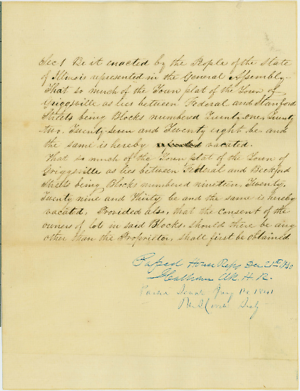 Sec 1 Be it enacted by the People of the State
of Illinois represented in the General Assembly
That so much of the Town plat of the Town of
Griggsville as lies between Federal and Stanford
Streets being Blocks numbered Twenty one Twenty
two. Twenty Seven and Twenty eight be and
the same is hereby vacated.
That so much of the Town plat of the Town of
Griggsville as lies between Federal and Bedford
Streets being Blocks numbered nineteen, Twenty,
Twenty nine and Thirty be and the same is hereby
vacated. Provided also, that the consent of the
owners of Lot in said Blocks should there be any
other than the Proprietor, shall first be obtained
Passed House Reps Dec 1840
Calhoun Clk H. R.
Senate Jany 1841